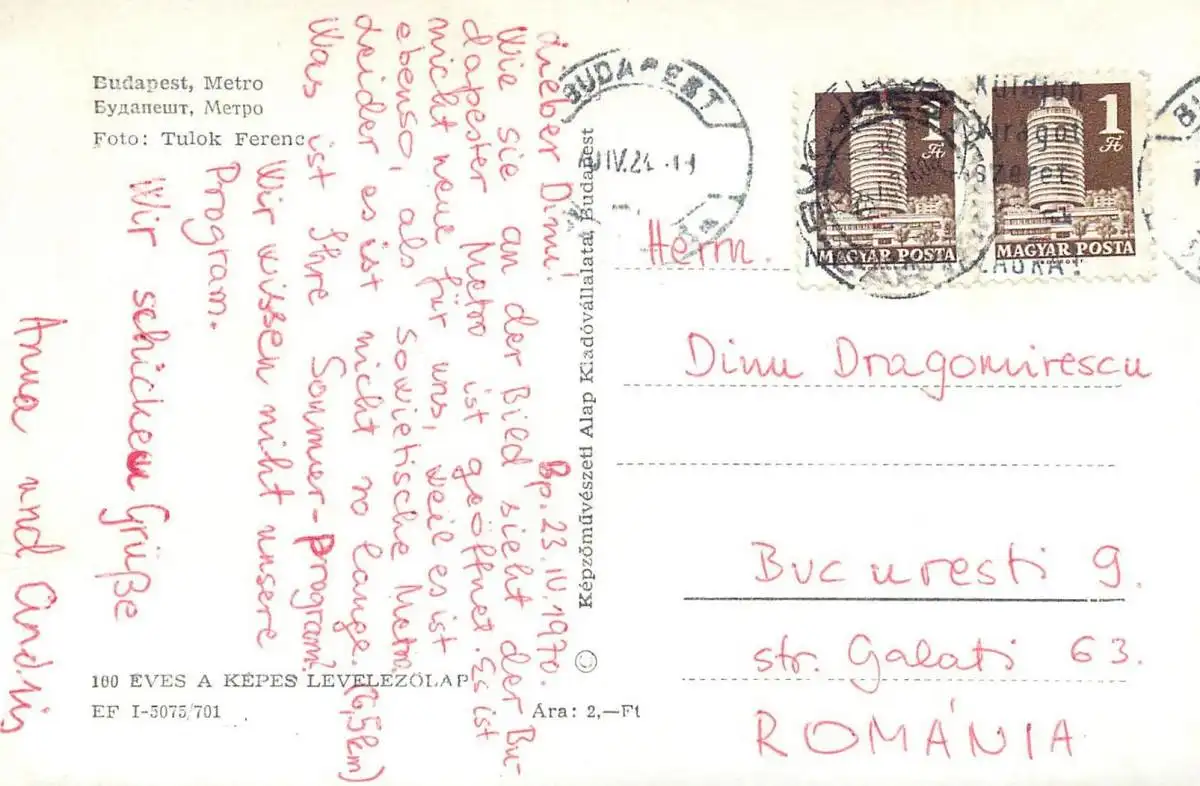 Budapest, Metro
Будапешт, Метро
Foto: Tulok Ferenc
Bp. 23.IV.1970.
Lieber Dinu!
Wie sie an der Bild sieht der Bu-
dapester Metro ist geöffnet. Es ist
nicht neue für uns, weil es ist
ebenso, als sowietische Metro
leider es ist nicht so lange. (6,5km)
Was ist Ihre Sommer-Program?
Wir wissen niht unsere
Program.
Wir schicken Grüße
Anna und
100 ÉVES A KÉPES LEVELEZŐLAP
EF I-5075/701
Ára: 2,—Ft
Képzőművészeti Alap Kiadóvállalata, Budapest
©
BUDAPEST
1 Ft
MAGYAR POSTA
1 Ft
MAGYAR POSTA
Küldjön
virágot
szeret
Herrn.
Dinu Dragomirescu
Bucuresti 9.
str. Galati 63.
ROMÁNIA